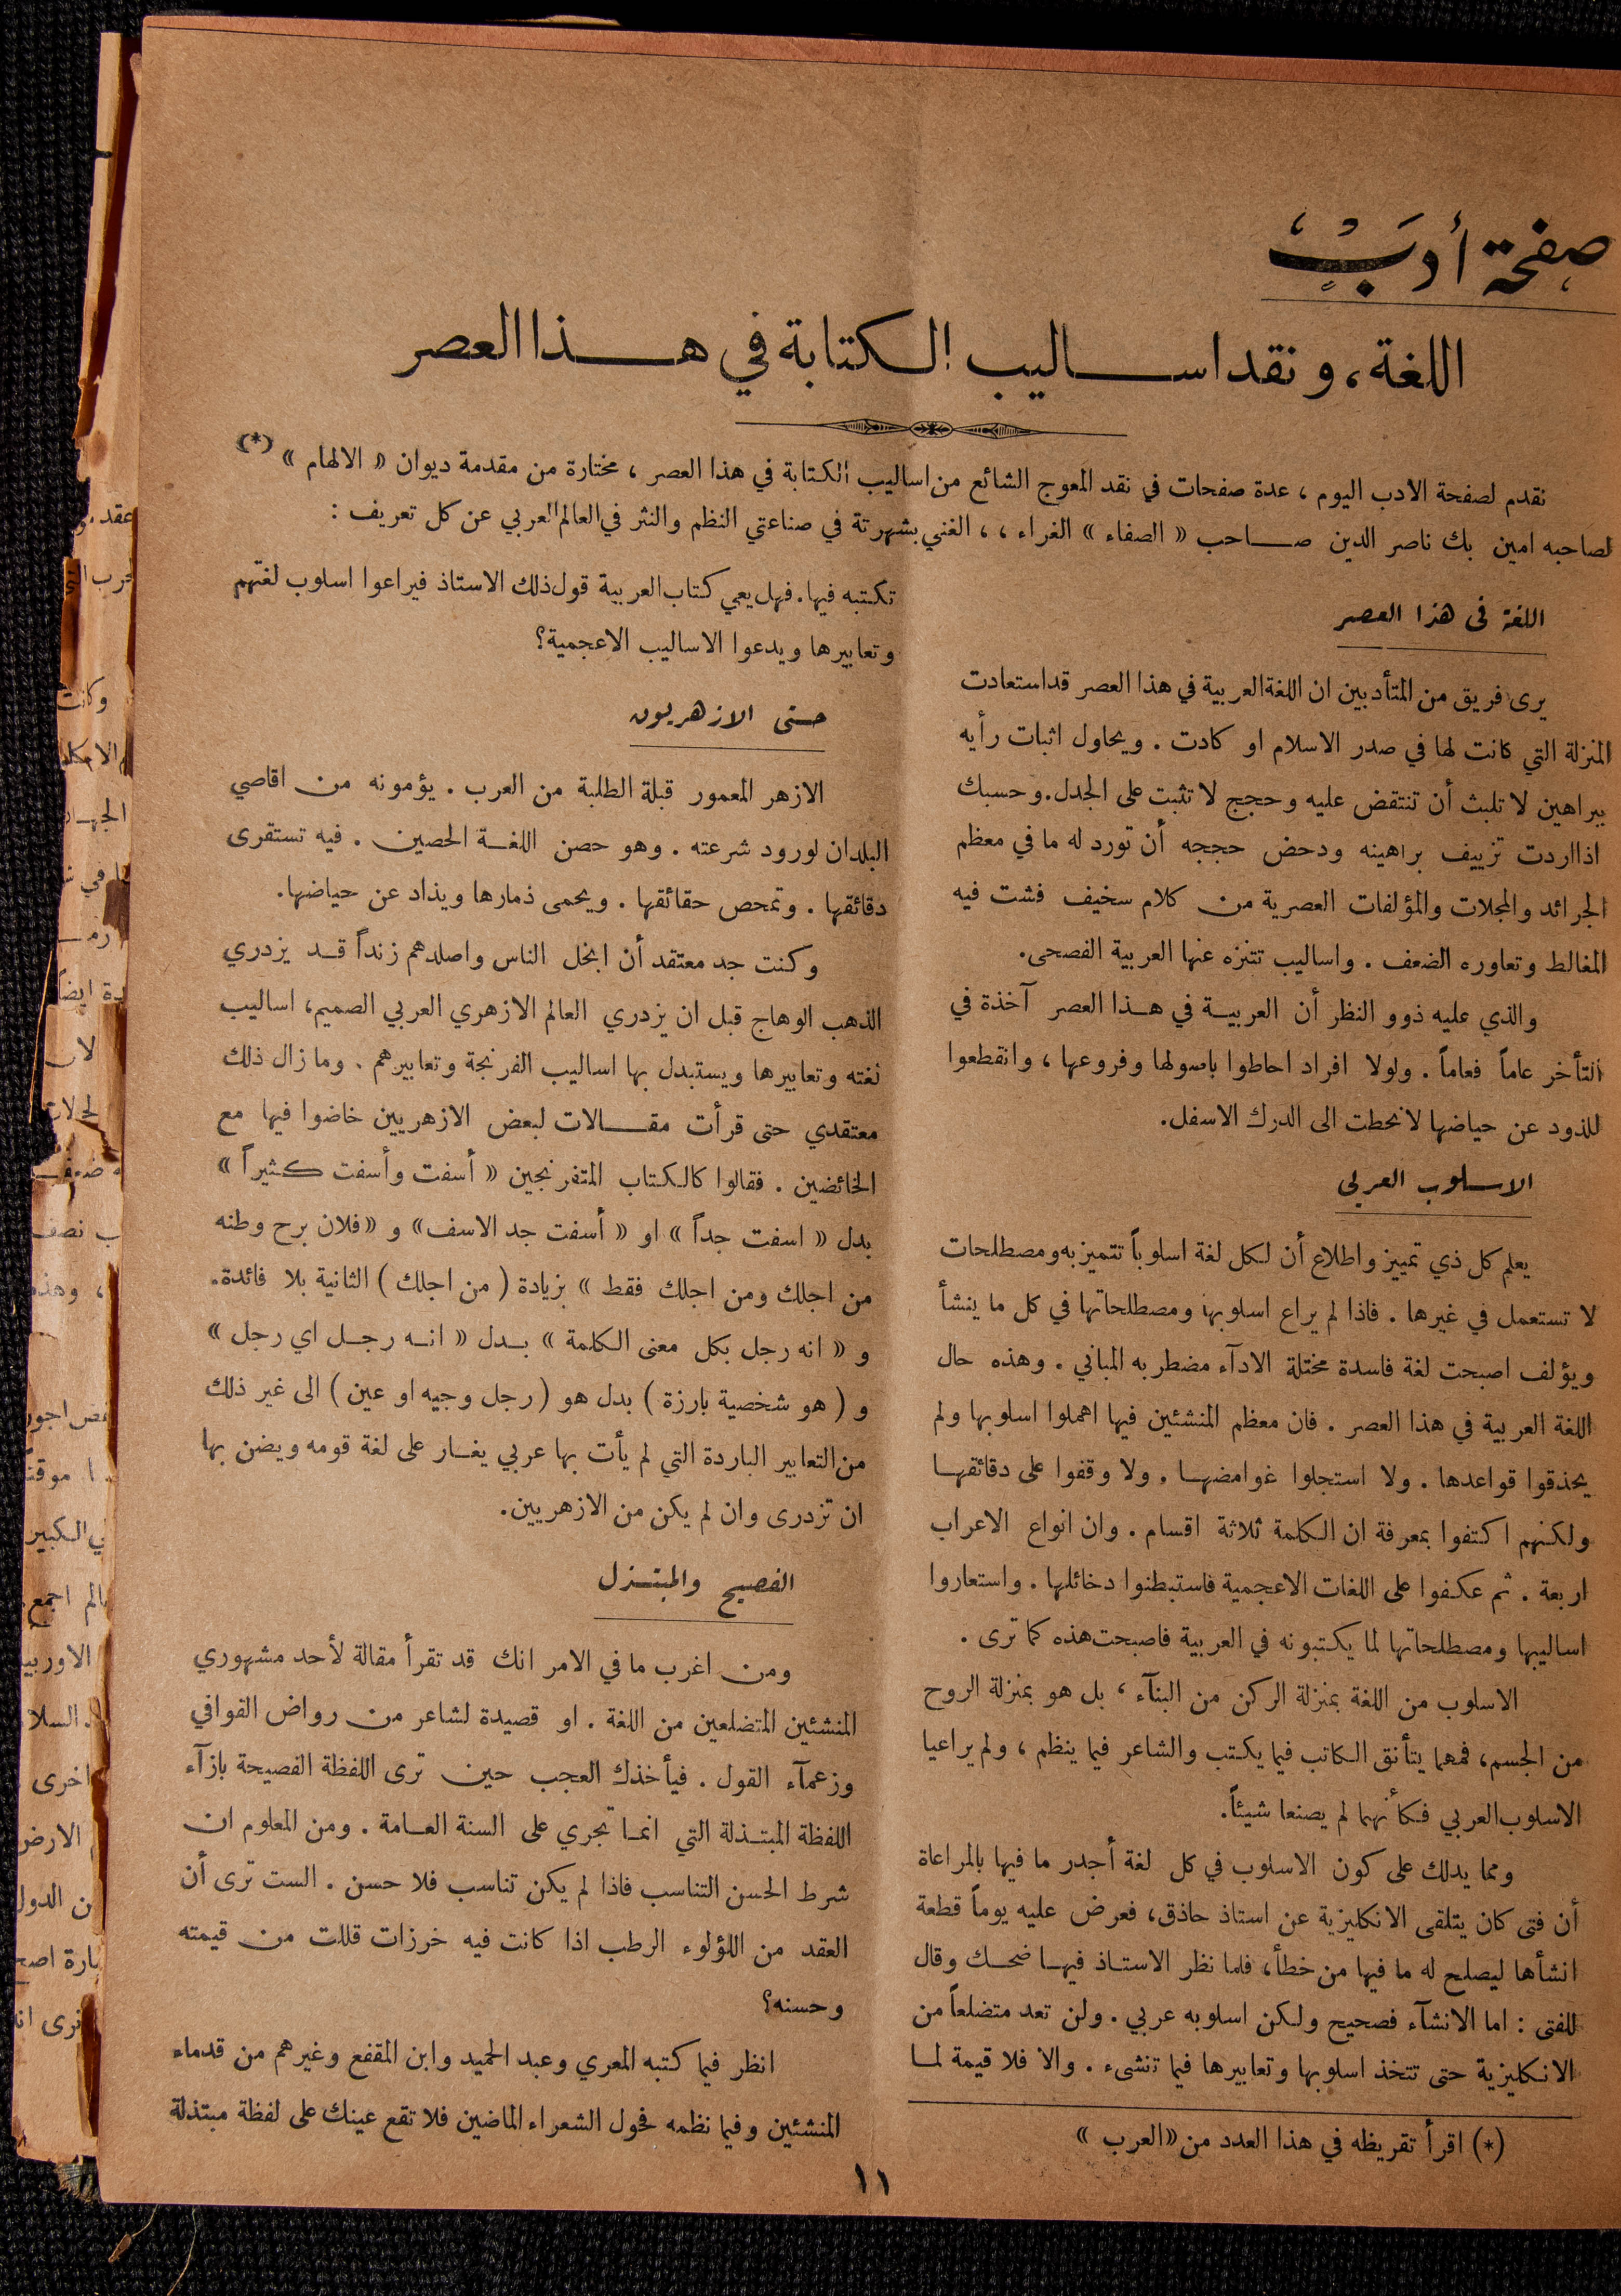 صفحة أدب
اللغة، ونقد اساليب الكتابة في هذا العصر
نقدم لصفحة الادب اليوم ، عدة صفحات في نقد المعوج الشائع من اساليب الكتابة في هذا العصر ، مختارة من مقدمة ديوان « الالهام » (*)
لصاحبه امين بك ناصر الدين صاحب « الصفاء » الغراء ، ، الغني بشهرتة في صناعتي النظم والنثر في العالم العربي عن كل تعريف :
اللغة في هذا العصر
يرى فريق من المتأدبين ان اللغة العربية في هذا العصر قد استعادت
المنزلة التي كانت لها في صدر الاسلام او كادت . ويحاول اثبات رأيه
ببراهين لا تلبث أن تنتقض عليه وحجج لا تثبت على الجدل. وحسبك
اذا اردت تزييف براهينه ودحض حججه أن تورد له ما في معظم
الجرائد والمجلات والمؤلفات العصرية من كلام سخيف فشت فيه
المغالط وتعاوره الضعف . واساليب تتنزه عنها العربية الفصحى.
والذي عليه ذوو النظر أن العربية في هذا العصر آخذة في
التأخر عاماً فعاماً . ولولا افراد احاطوا باصولها وفروعها ، وانقطعوا
للذود عن حياضها لانحطت الى الدرك الاسفل.
الاسلوب العربي
يعلم كل ذي تمييز واطلاع أن لكل لغة اسلوباً تتميز به ومصطلحات
لا تستعمل في غيرها . فاذا لم يراع اسلوبها ومصطلحاتها في كل ما ينشأ
ويؤلف اصبحت لغة فاسدة مختلة الادآء مضطربه المباني . وهذه حال
اللغة العربية في هذا العصر . فان معظم المنشئين فيها اهملوا اسلوبها ولم
يحذقوا قواعدها . ولا استجلوا غوامضها . ولا وقفوا على دقائقها
ولكنهم اكتفوا بمعرفة ان الكلمة ثلاثة اقسام . وان انواع الاعراب
اربعة . ثم عكفوا على اللغات الاعجمية فاستبطنوا دخائلها . واستعاروا
اساليبها ومصطلحاتها لما يكتبونه في العربية فاصبحت هذه كما ترى .
الاسلوب من اللغة بمنزلة الركن من البنآء ، بل هو بمنزلة الروح
من الجسم، فمهما يتأنق الكاتب فيما يكتب والشاعر فيما ينظم ، ولم يراعيا
الاسلوب العربي فكأنهما لم يصنعا شيئاً.
ومما يدلك على كون الاسلوب في كل لغة أجدر ما فيها بالمراعاة
أن فتى كان يتلقى الانكليزية عن استاذ حاذق، فعرض عليه يوماً قطعة
انشأها ليصلح له ما فيها من خطأ، فلما نظر الاستاذ فيها ضحك وقال
للفتى : اما الانشآء فصحيح ولكن اسلوبه عربي . ولن تعد متضلعاً من
الانكليزية حتى تتخذ اسلوبها وتعابيرها فيما تنشىء . والا فلا قيمة لما
(*) اقرأ تقريظه في هذا العدد من «العرب »
تكتبه فيها. فهل يعي كتاب العربية قول ذلك الاستاذ فيراعوا اسلوب لغتهم
وتعابيرها ويدعوا الاساليب الاعجمية؟
حتى الازهريون
الازهر المعمور قبلة الطلبة من العرب . يؤمونه من اقاصي
البلدان لورود شرعته . وهو حصن اللغة الحصين . فيه تستقرى
دقائقها . وتمحص حقائقها . ويحمى ذمارها ويذاد عن حياضها.
وكنت جد معتقد أن ابخل الناس واصلدهم زنداً قد يزدري
الذهب الوهاج قبل ان يزدري العالم الازهري العربي الصميم، اساليب
لغته وتعابيرها ويستبدل بها اساليب الفرنجة وتعابيرهم . وما زال ذلك
معتقدي حتى قرأت مقالات لبعض الازهريين خاضوا فيها مع
الخائضين . فقالوا كالكتاب المتفرنجين « أسفت وأسفت كثيراً »
بدل « اسفت جداً » او « أسفت جد الاسف» و « فلان برح وطنه
من اجلك ومن اجلك فقط » بزيادة ( من اجلك ) الثانية بلا فائدة.
و « انه رجل بكل معنى الكلمة » بدل « انه رجل اي رجل »
و ( هو شخصية بارزة ) بدل هو ( رجل وجيه او عين ) الى غير ذلك
من التعابير الباردة التي لم يأت بها عربي يغار على لغة قومه ويضن بها
ان تزدرى وان لم يكن من الازهريين.
الفصيح والمبتذل
ومن اغرب ما في الامر انك قد تقرأ مقالة لأحد مشهوري
المنشئين المتضلعين من اللغة . او قصيدة لشاعر من رواض القوافي
وزعمآء القول . فيأخذك العجب حين ترى اللفظة الفصيحة بازآء
اللفظة المبتذلة التي انما تجري على السنة العامة . ومن المعلوم ان
شرط الحسن التناسب فاذا لم يكن تناسب فلا حسن . الست ترى أن
العقد من اللؤلوء الرطب اذا كانت فيه خرزات قللت من قيمته
وحسنه؟
انظر فيما كتبه المعري وعبد الحميد وابن المقفع وغيرهم من قدماء
المنشئين وفيما نظمه فحول الشعراء الماضين فلا تقع عينك على لفظة مبتذلة
١١